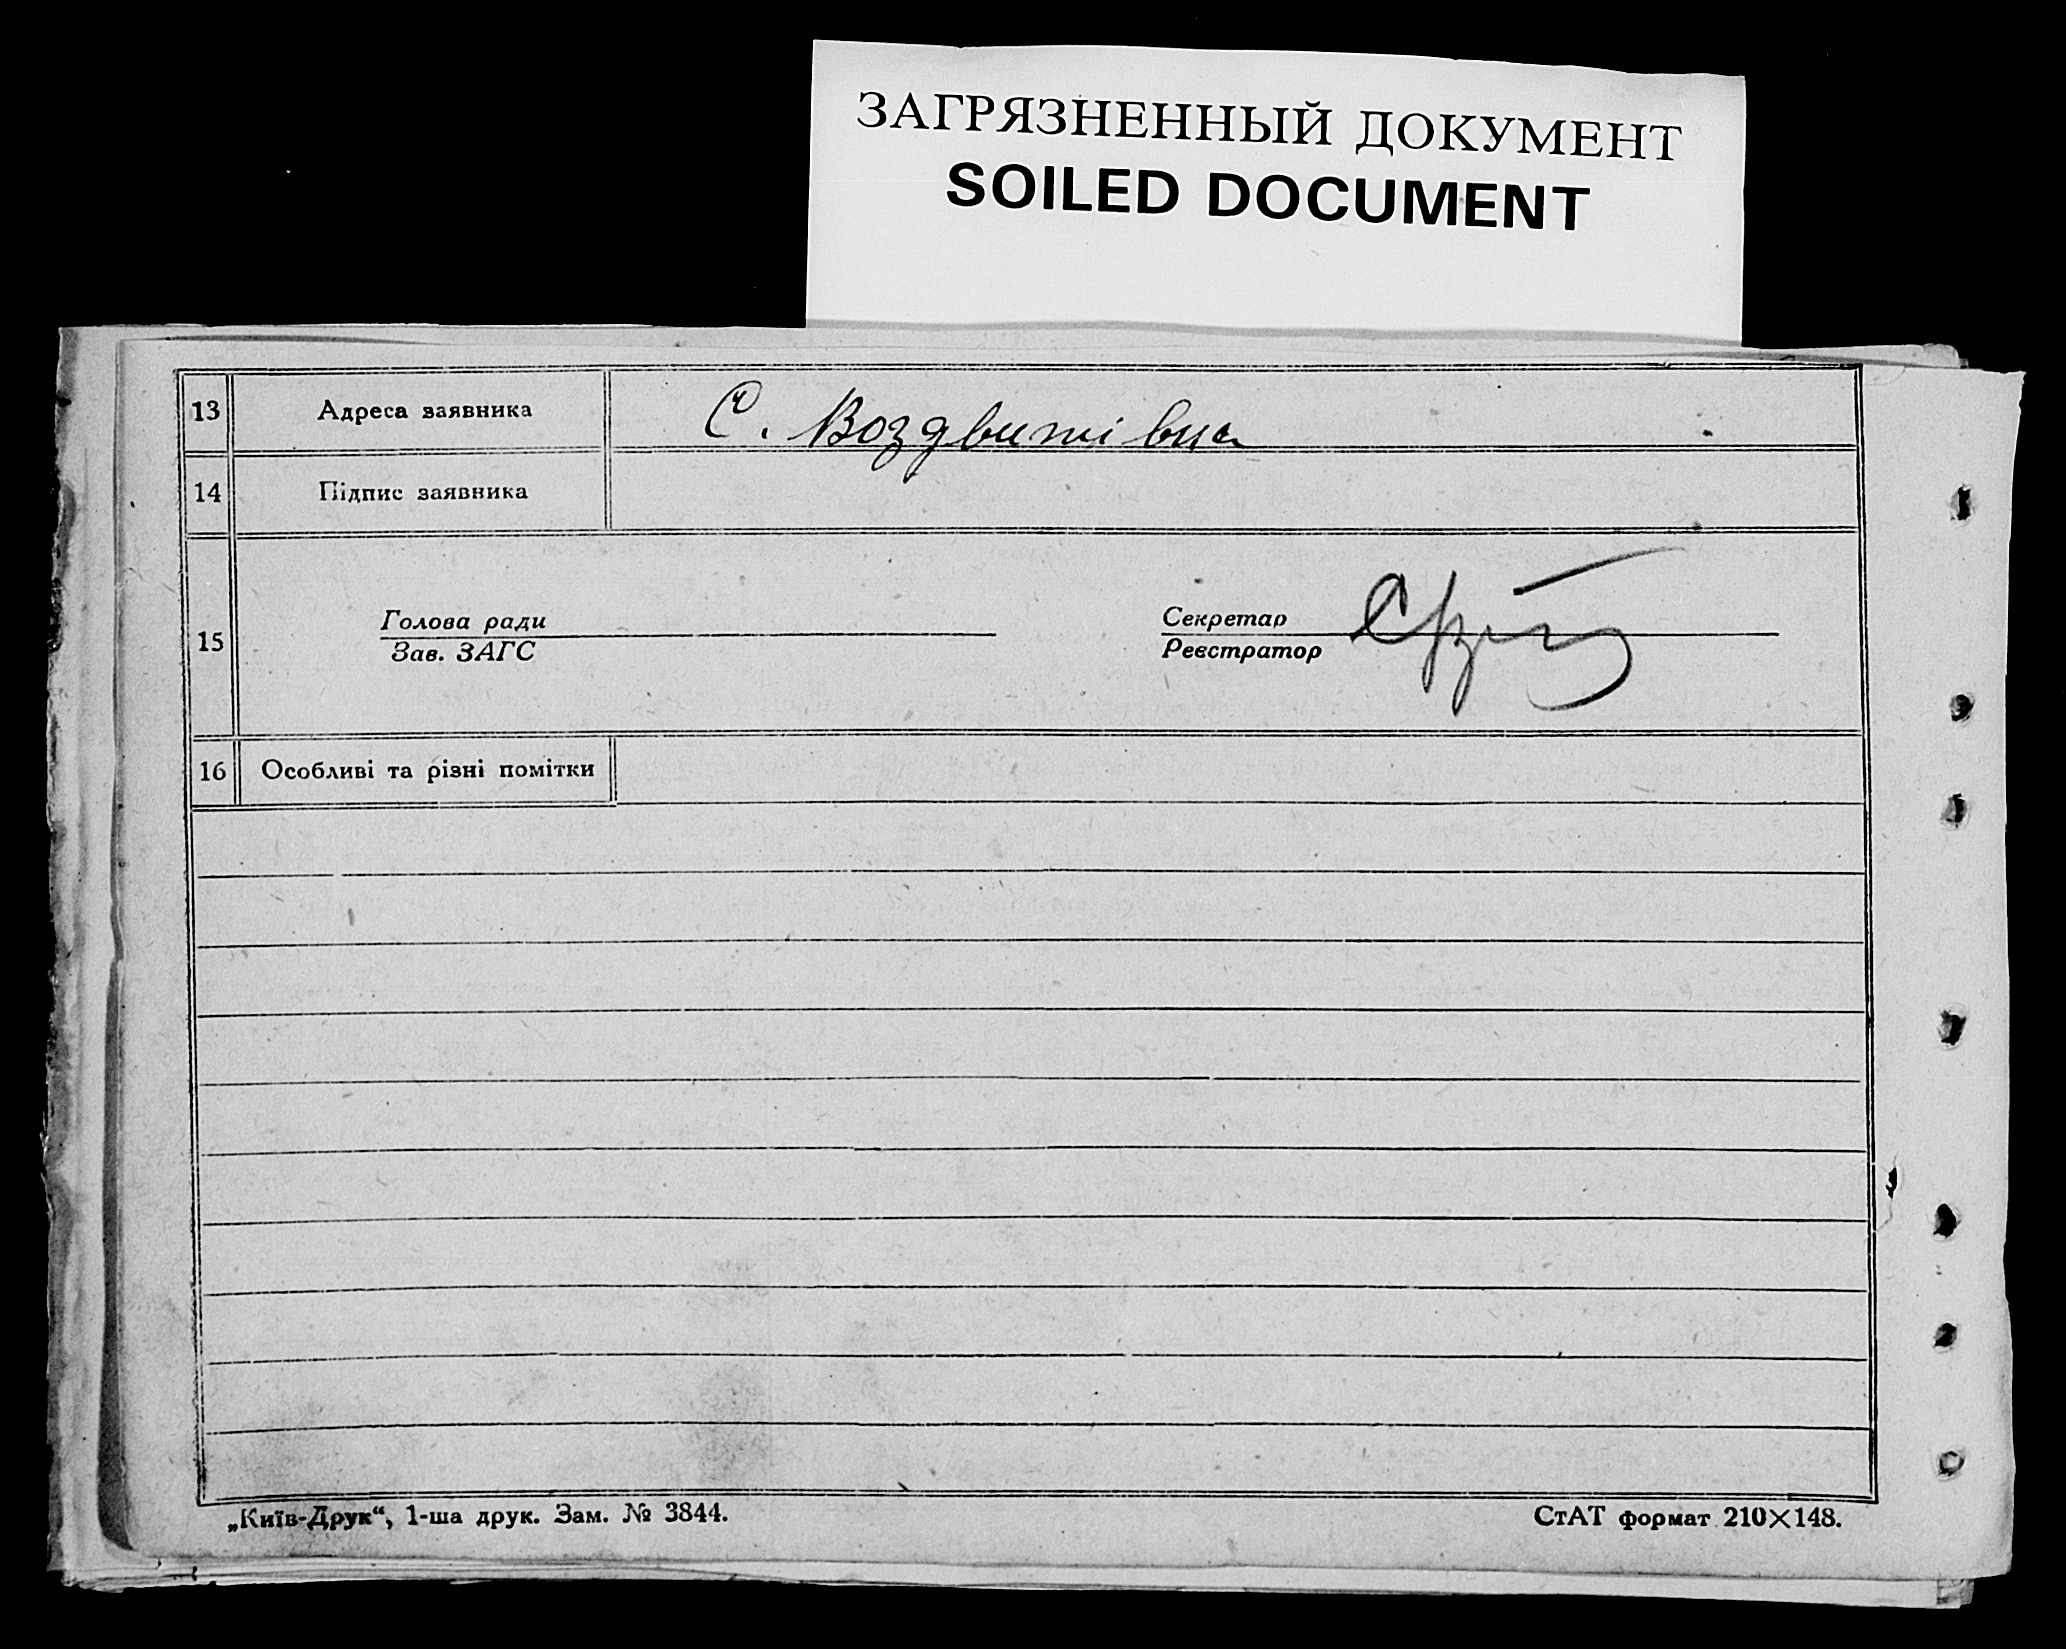 ЗАГРЯЗНЕННЫЙ ДОКУМЕНТ
SOILED DOCUMENT
13 Адреса заявника С. Воздвижівка
14 Підпис заявника
15 Голова ради
Зав. ЗАГС
Секретар
Реєстратор
16 Особливі та різні помітки
„Київ-Друк“, 1-ша друк. Зам. № 3844.
СтАТ формат 210×148.